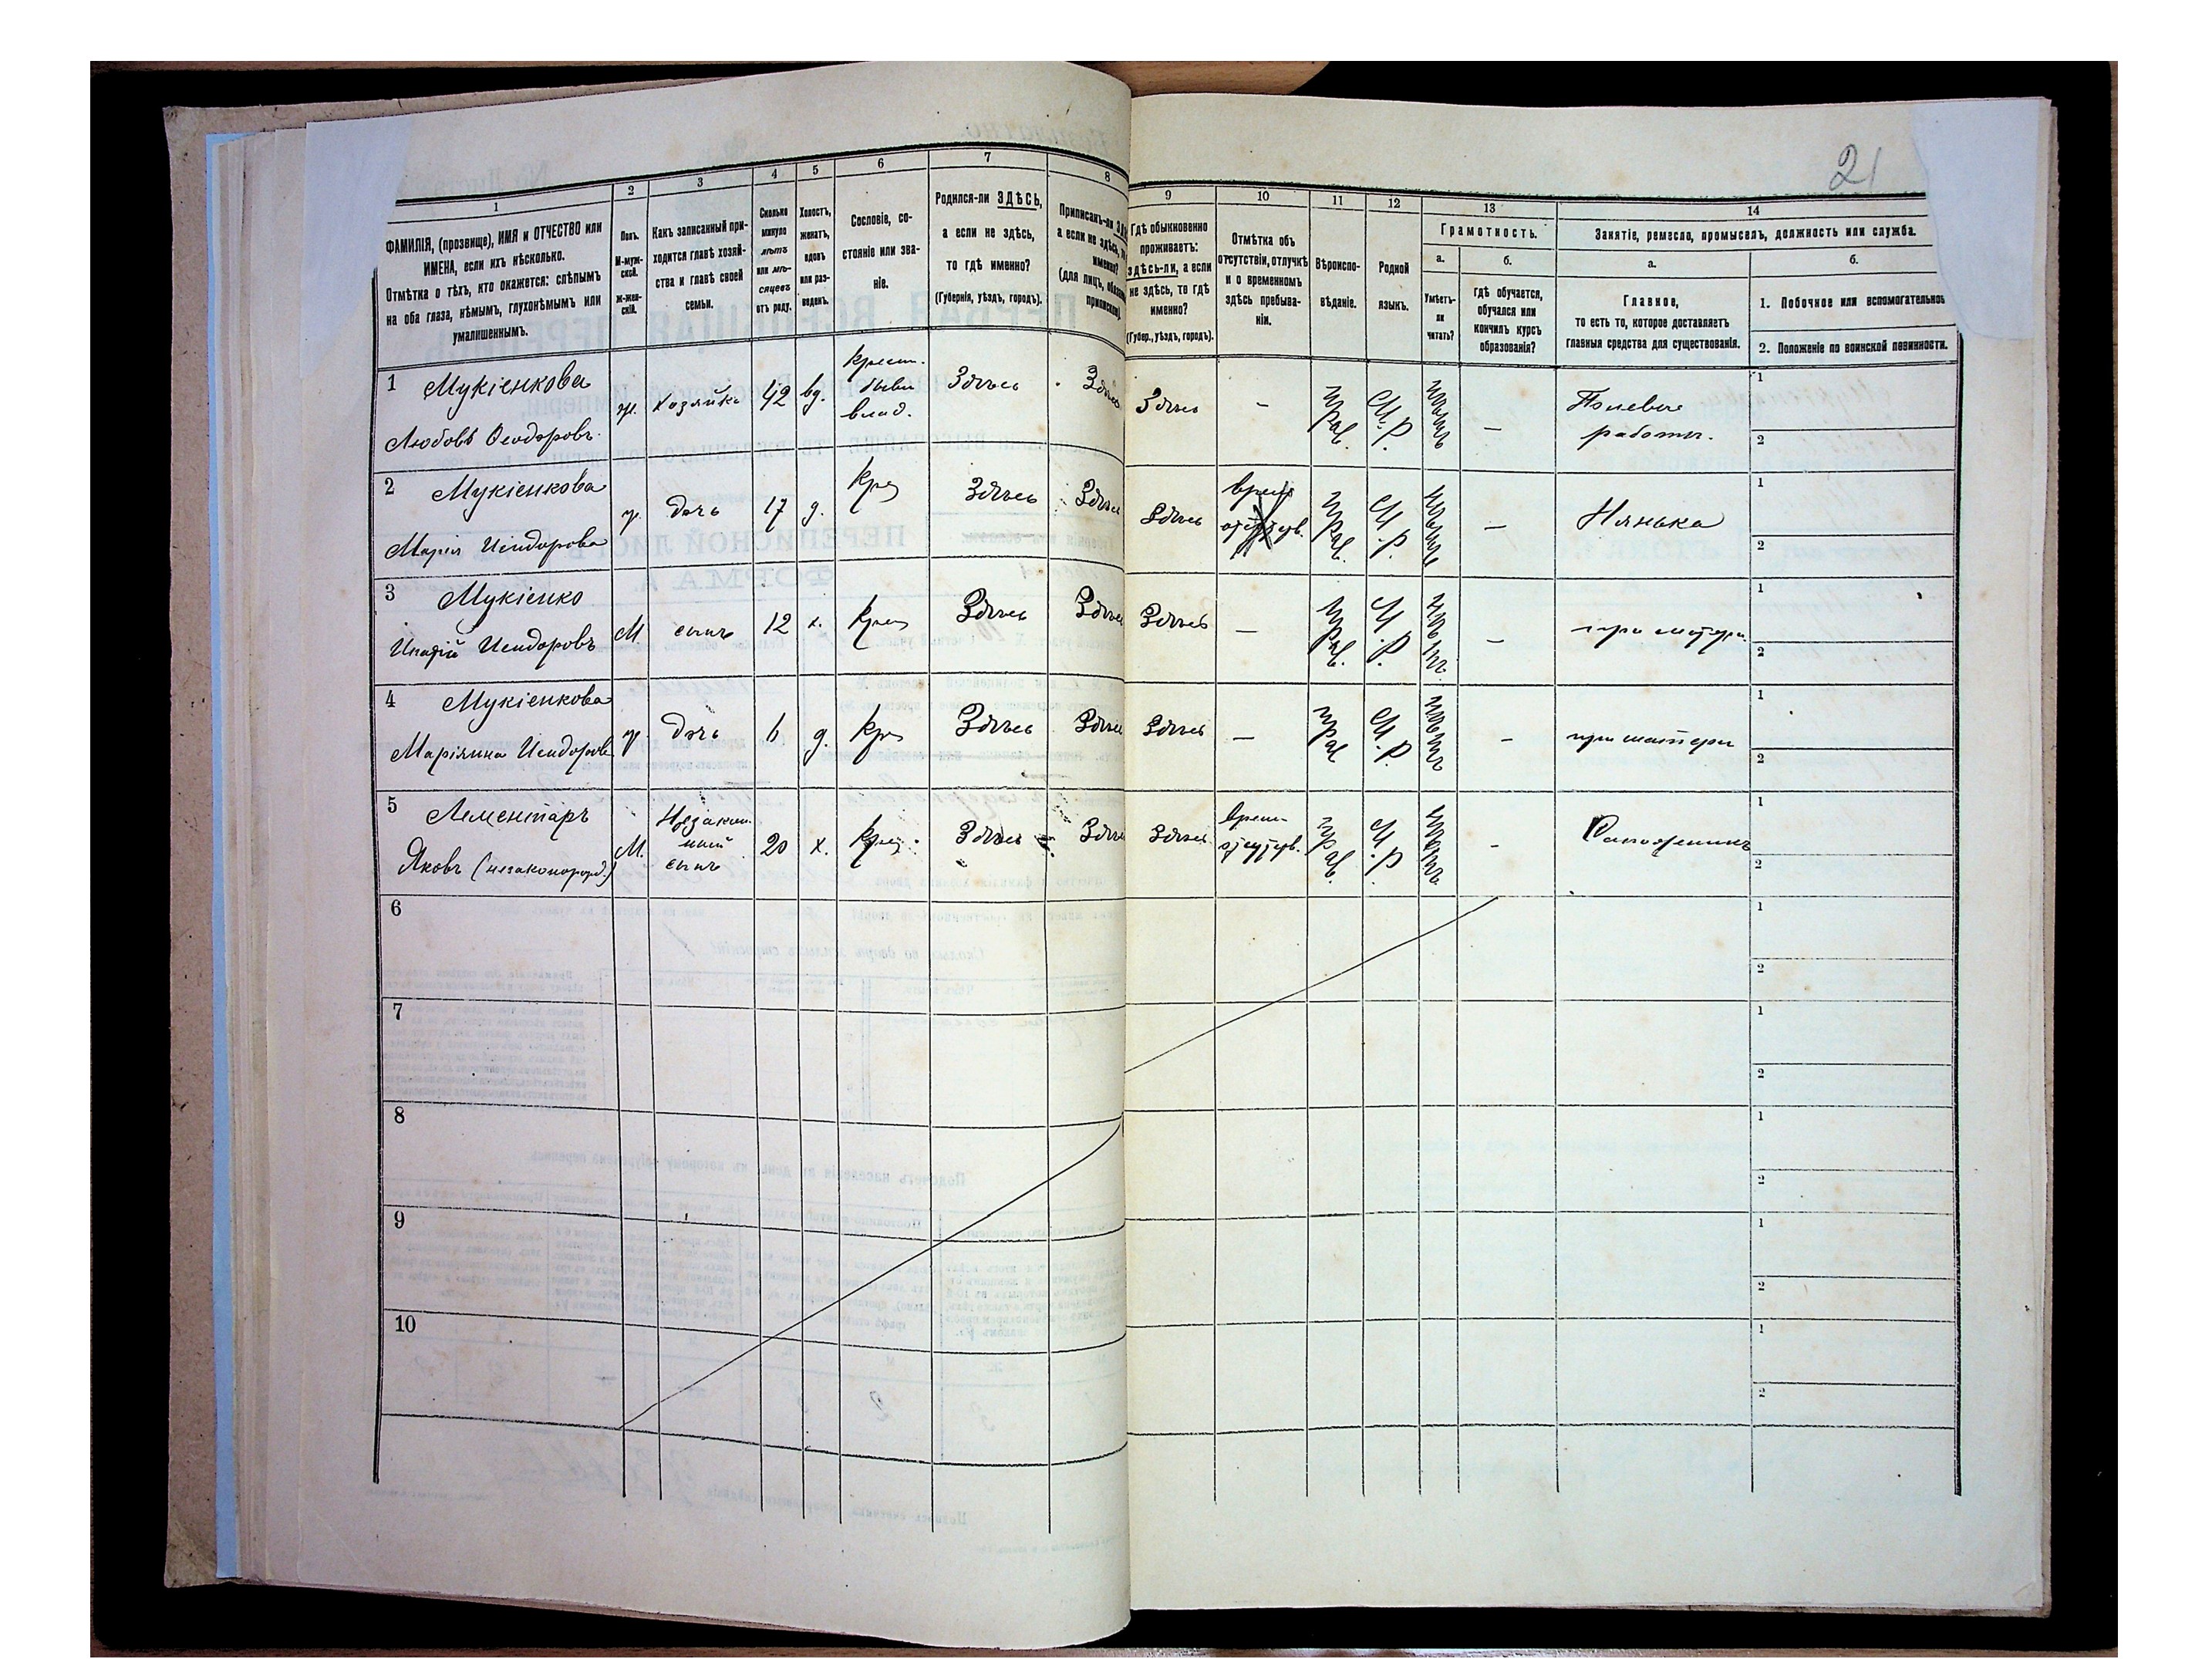 21
1
2
3
4
5
6
7
8
9
10
11
12
13
14
ФАМИЛІЯ, (прозвище), ИМЯ и ОТЧЕСТВО или
ИМЕНА, если ихъ нѣсколько.
Отмѣтка о тѣхъ, кто окажется: слѣпымъ
на оба глаза, нѣмымъ, глухонѣмымъ или
умалишеннымъ.
Полъ.
М-муж-
ской.
ж-жен-
скій.
Какъ записанный при-
ходится главѣ хозяй-
ства и главѣ своей
семьи.
Сколько
минуло
лѣтъ
или мѣ-
сяцевъ
отъ роду.
Холостъ,
женатъ,
вдовъ
или раз-
веденъ.
Сословіе, со-
стояніе или зва-
ніе.
Родился-ли ЗДѢСЬ,
а если не здѣсь,
то гдѣ именно?
(Губернія, уѣздъ, городъ).
Приписанъ-ли
а если не здѣсь,
именно?
(для лицъ,
Гдѣ обыкновенно
проживаетъ:
здѣсь-ли, а если
не здѣсь, то гдѣ
именно?
(Губер., уѣздъ, городъ).
Отмѣтка объ
отсутствіи, отлучкѣ
и о временномъ
здѣсь пребыва-
ніи.
Вѣроиспо-
вѣданіе.
Родной
языкъ.
Грамотность.
а.
б.
Умѣетъ-
ли
читать?
гдѣ обучается,
обучался или
кончилъ курсъ
образованія?
Занятіе, ремесло, промыселъ, должность или служба.
а.
б.
Главное,
то есть то, которое доставляетъ
главныя средства для существованія.
1. Побочное или вспомогательное
2. Положеніе по воинской повинности.
1 Мукіенкова
Любовь Ѳеодоровъ.
ж. Хозяйка 42 вд.
Крест.
бывш
влад.
Здѣсь Здѣсь Здѣсь – прав. М.Р. –
Полевые
работы.
1
2
2 Мукіенкова
Марія Исидорова
ж. дочь 17 д. Кре Здѣсь Здѣсь Здѣсь
прав. М.Р. – Нянька
1
2
3 Мукіенко
Исидоровъ
М. сынъ 12 х. Крес Здѣсь Здѣсь Здѣсь – прав. М.Р. – при матери
1
2
4 Мукіенкова
Маріянна Исидоров
ж. дочь 6 д. Кре Здѣсь Здѣсь Здѣсь – прав М.Р. – при матери
1
2
5 Лементаръ
Яковъ (незаконорожд.)
М.
Незакон
ный
сынъ
20 х. Крес Здѣсь Здѣсь Здѣсь
врем.
отсутств.
прав. М.Р. – Сапожникъ
1
2
6
1
2
7
1
2
8
1
2
9
1
2
10
1
2